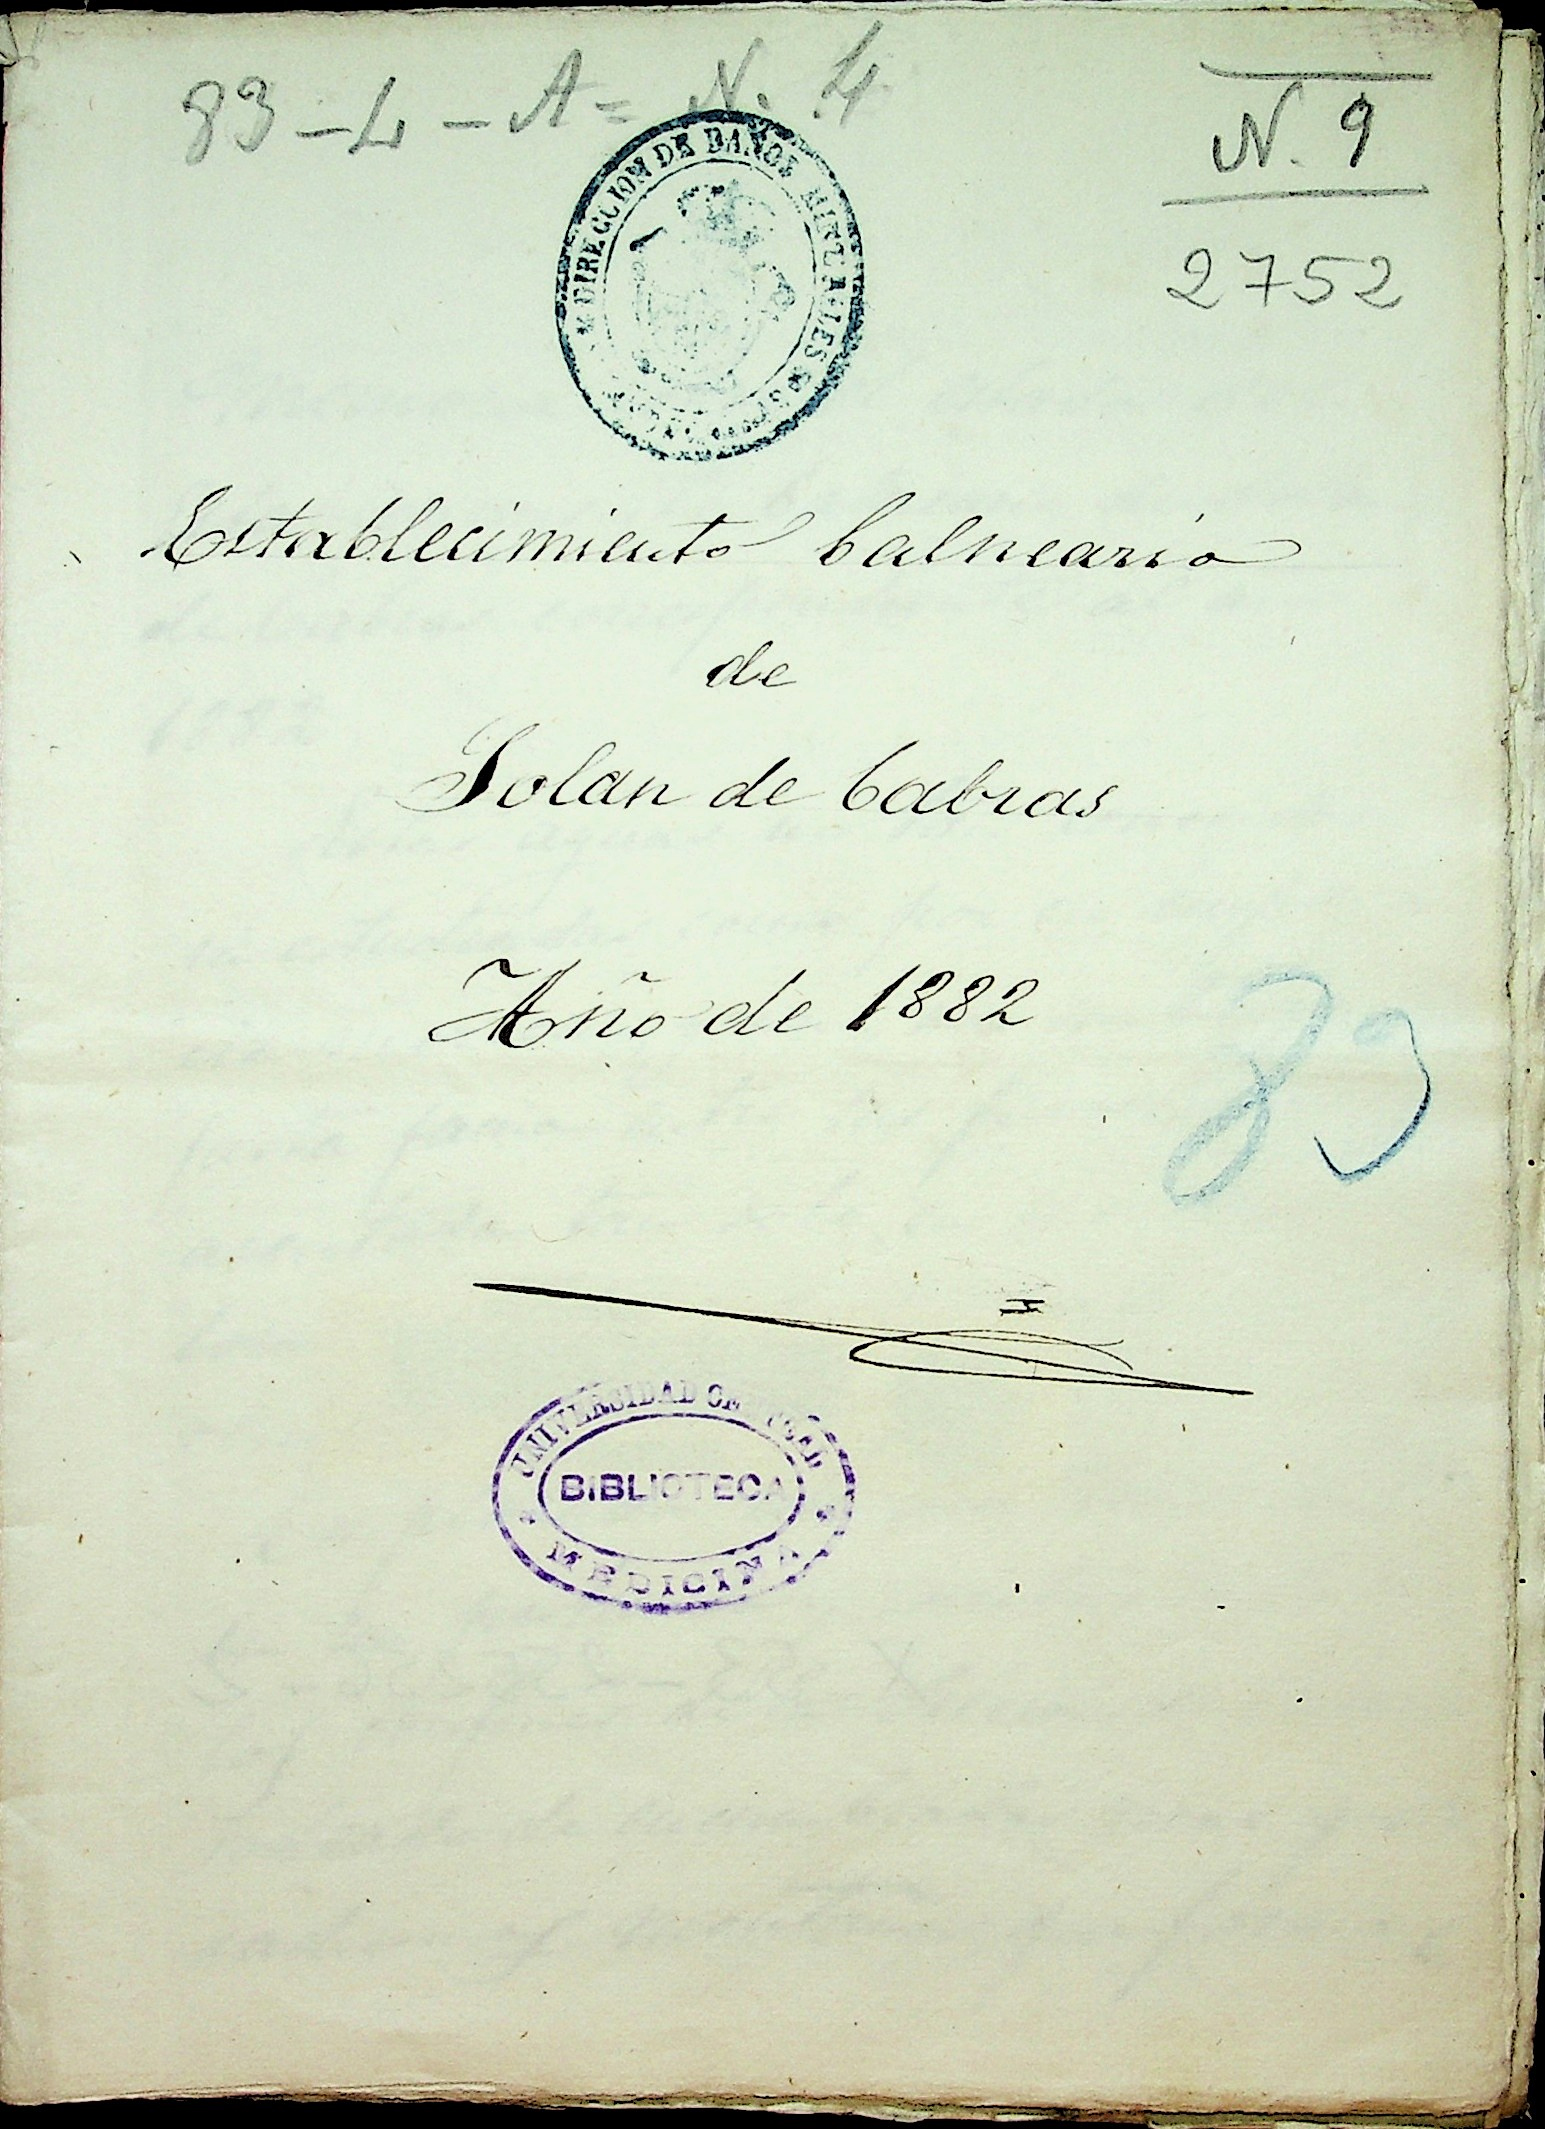 83-4-A= N. 4
N. 9
2752
DIRECCION DE BAÑOS MINERALES
Establecimiento balneario
de
Solan de Cabras
Año de 1882
83
UNIVERSIDAD
BIBLIOTECA
MEDICINA